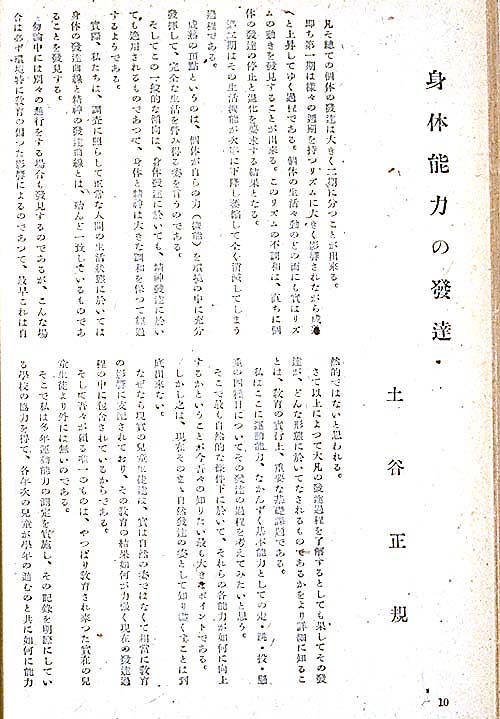 身体能力の發達
土谷正規
凡そ總ての個体の發達は大きく二期に分つことが出來る。
即ち第一期は様々の週期を持つリズムに大きく影響されながら成
と上昇してゆく過程である。個体の生活々動のどの面にも實はリズ
ムの動きを發見することが出來る。このリズムの不調和は、直ちに個
体の發達の停止と退化を要求する結果となる。
第二期はその生活機能が次第に下降し萎縮して全く消滅してしまう
過程である。
成熟の頂点というのは、個体が自らの力(機能)を環境の中に充分
發揮して、完全な生活を營み得る姿を言うのである。
そしてこの一般的な傾向は、身体發達に於いても、精神發達に於い
ても適用されるものであつて、身体と精神は大きな調和を保つて經過
するようである。
實際、私たちは、調査に照らして正常な人間の生活狀態に於いては
身体の發達曲線と精神の發達曲線とは、殆んど一致しているものであ
ることを發見する。
勿論中には別々の進行をする場合も發見するのであるが、こんな場
合は必ず環境特に教育の偏つた影響によるのであつて、最早これは自
然的ではないと思われる。
さて以上によつて大凡の發達過程を了解するとしても果してその發
達が、どんな形態に於いてなされるものであるかをより詳細に知るこ
とは、教育の實行上、重要な基礎課題である。
私はここに運動能力、なかんずく基本能力としての走・跳・投・懸
垂の四種目についてその發達の過程を考えてみたいと思う。
そこで最も自然的な條件下に於いて、それらの各能力が如何に向上
するかということが今吾々の知りたい最も大きなポイントである。
しかし之は、現在そのまゝ自然發達の姿として知り盡くすことは到
底出來ない。
なぜなら現實の兒童生徒達は、實は自然の姿ではなくて相當に教育
の影響に支配されており、その教育の結果如何が力强く現在の發達過
程の中に包含されているからである。
そして吾々が頼る唯一のものは、やつぱり教育され來つた實在の兒
童生徒より外には無いのである。
そこで私は多年運動能力の測定を實施し、その記錄を明瞭にしてい
る學校の協力を得て、各年次の兒童が學年の進むのと共に如何に能力
10